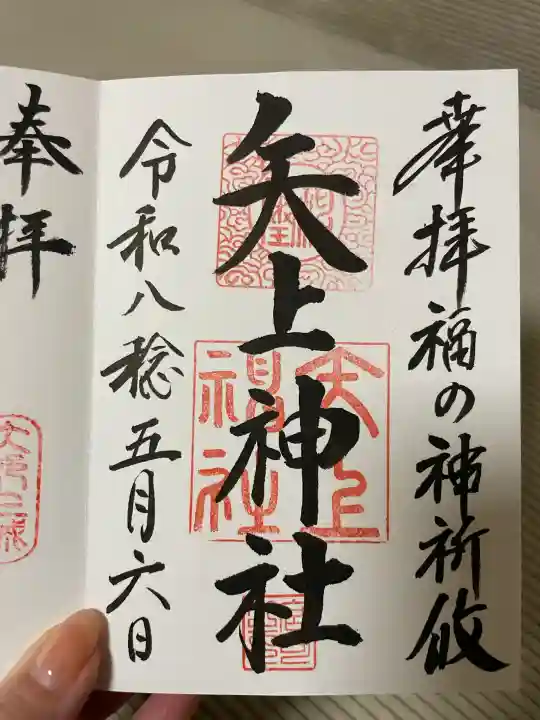 奉拝福の神祈攸
矢上神社
矢上神社
令和八稔五月六日
奉拝